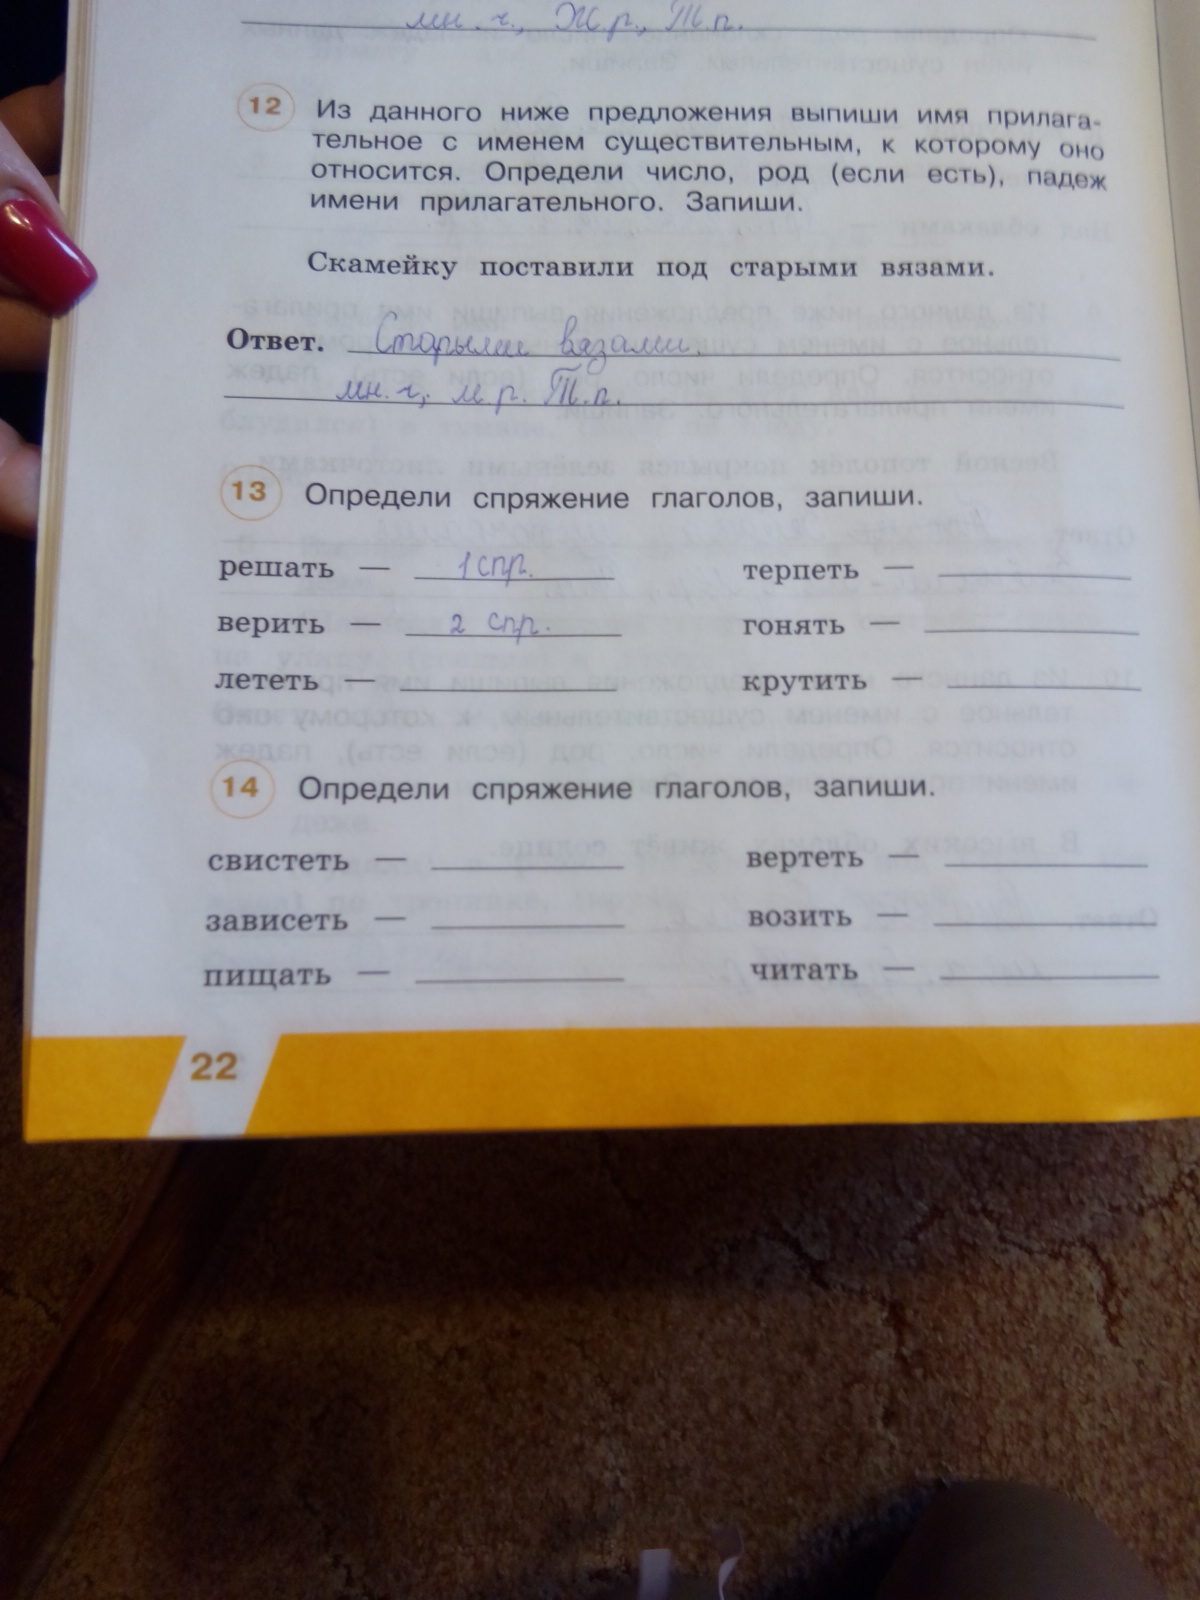 мн. ч., Ж.р., Т.п.
12 Из данного ниже предложения выпиши имя прилага-
тельное с именем существительным, к которому оно
относится. Определи число, род (если есть), падеж
имени прилагательного. Запиши.
Скамейку поставили под старыми вязами.
Ответ. Старыми вязами.
мн. ч., м р. Т.п.
13 Определи спряжение глаголов, запиши.
решать — 1 спр. терпеть —
верить — 2 спр. гонять —
лететь — крутить —
14 Определи спряжение глаголов, запиши.
свистеть — вертеть —
зависеть — возить —
пищать — читать —
22